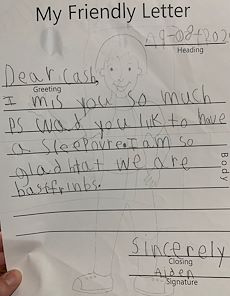 My Friendly Letter
Heading
Dear cash,
Greeting
I mis you so much
PS wad you lik to have
a sleepovre. I am so
glad htat we are
bastfrinbs.
Body
Sincerely
Closing
Aiden
Signature